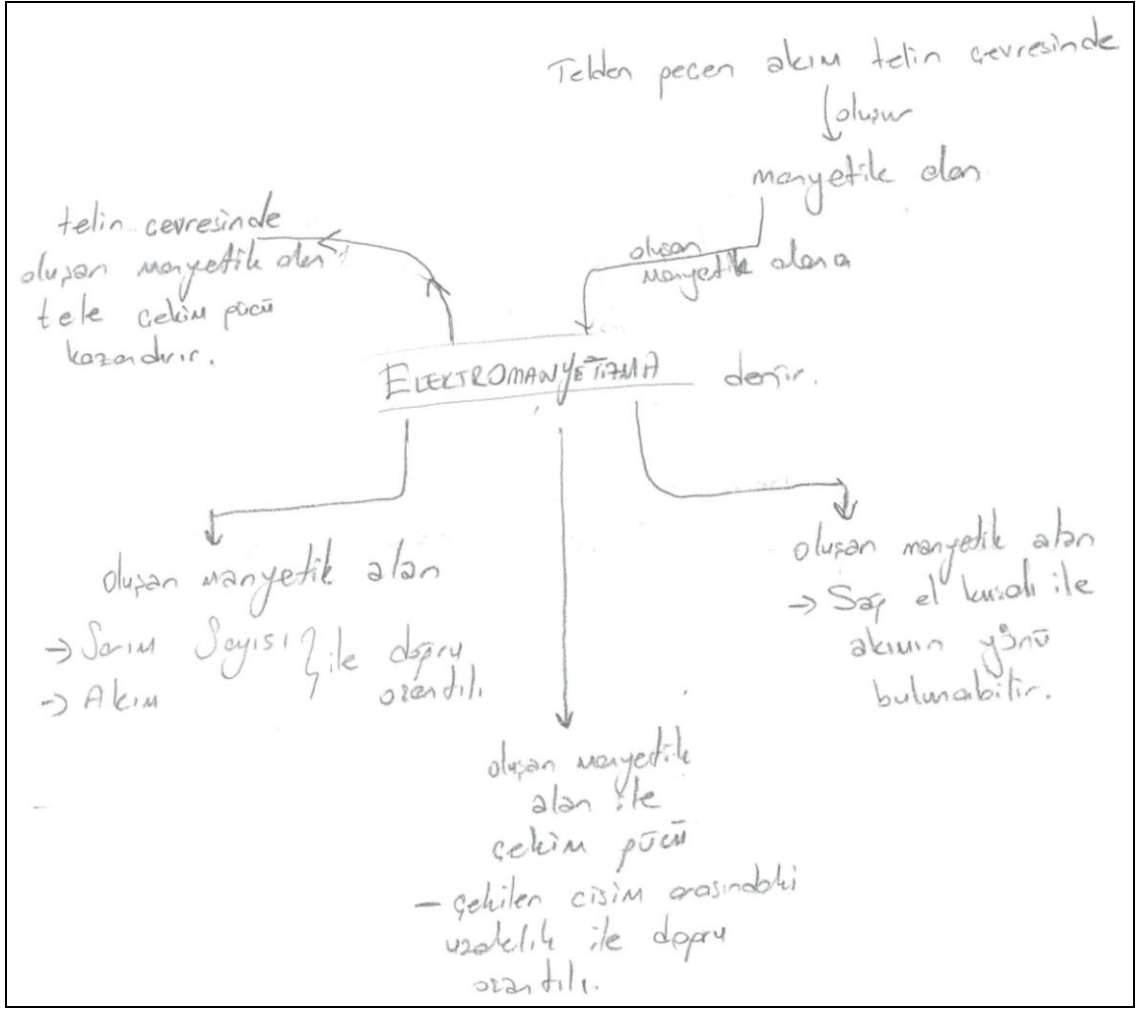 Telden geçen akım telin çevresinde
oluşur
manyetik alan
oluşan
manyetik alana
ELEKTROMANYETİZMA denir.
telin çevresinde
oluşan manyetik alan
tele çekim gücü
kazandırır.
oluşan manyetik alan
→ Sarım Sayısı } ile doğru
→ Akım orantılı
oluşan manyetik
alan ile
çekim gücü
- çekilen cisim arasındaki
uzaklık ile doğru
orantılı.
oluşan manyetik alan
→ Sağ el kuralı ile
akımın yönü
bulunabilir.